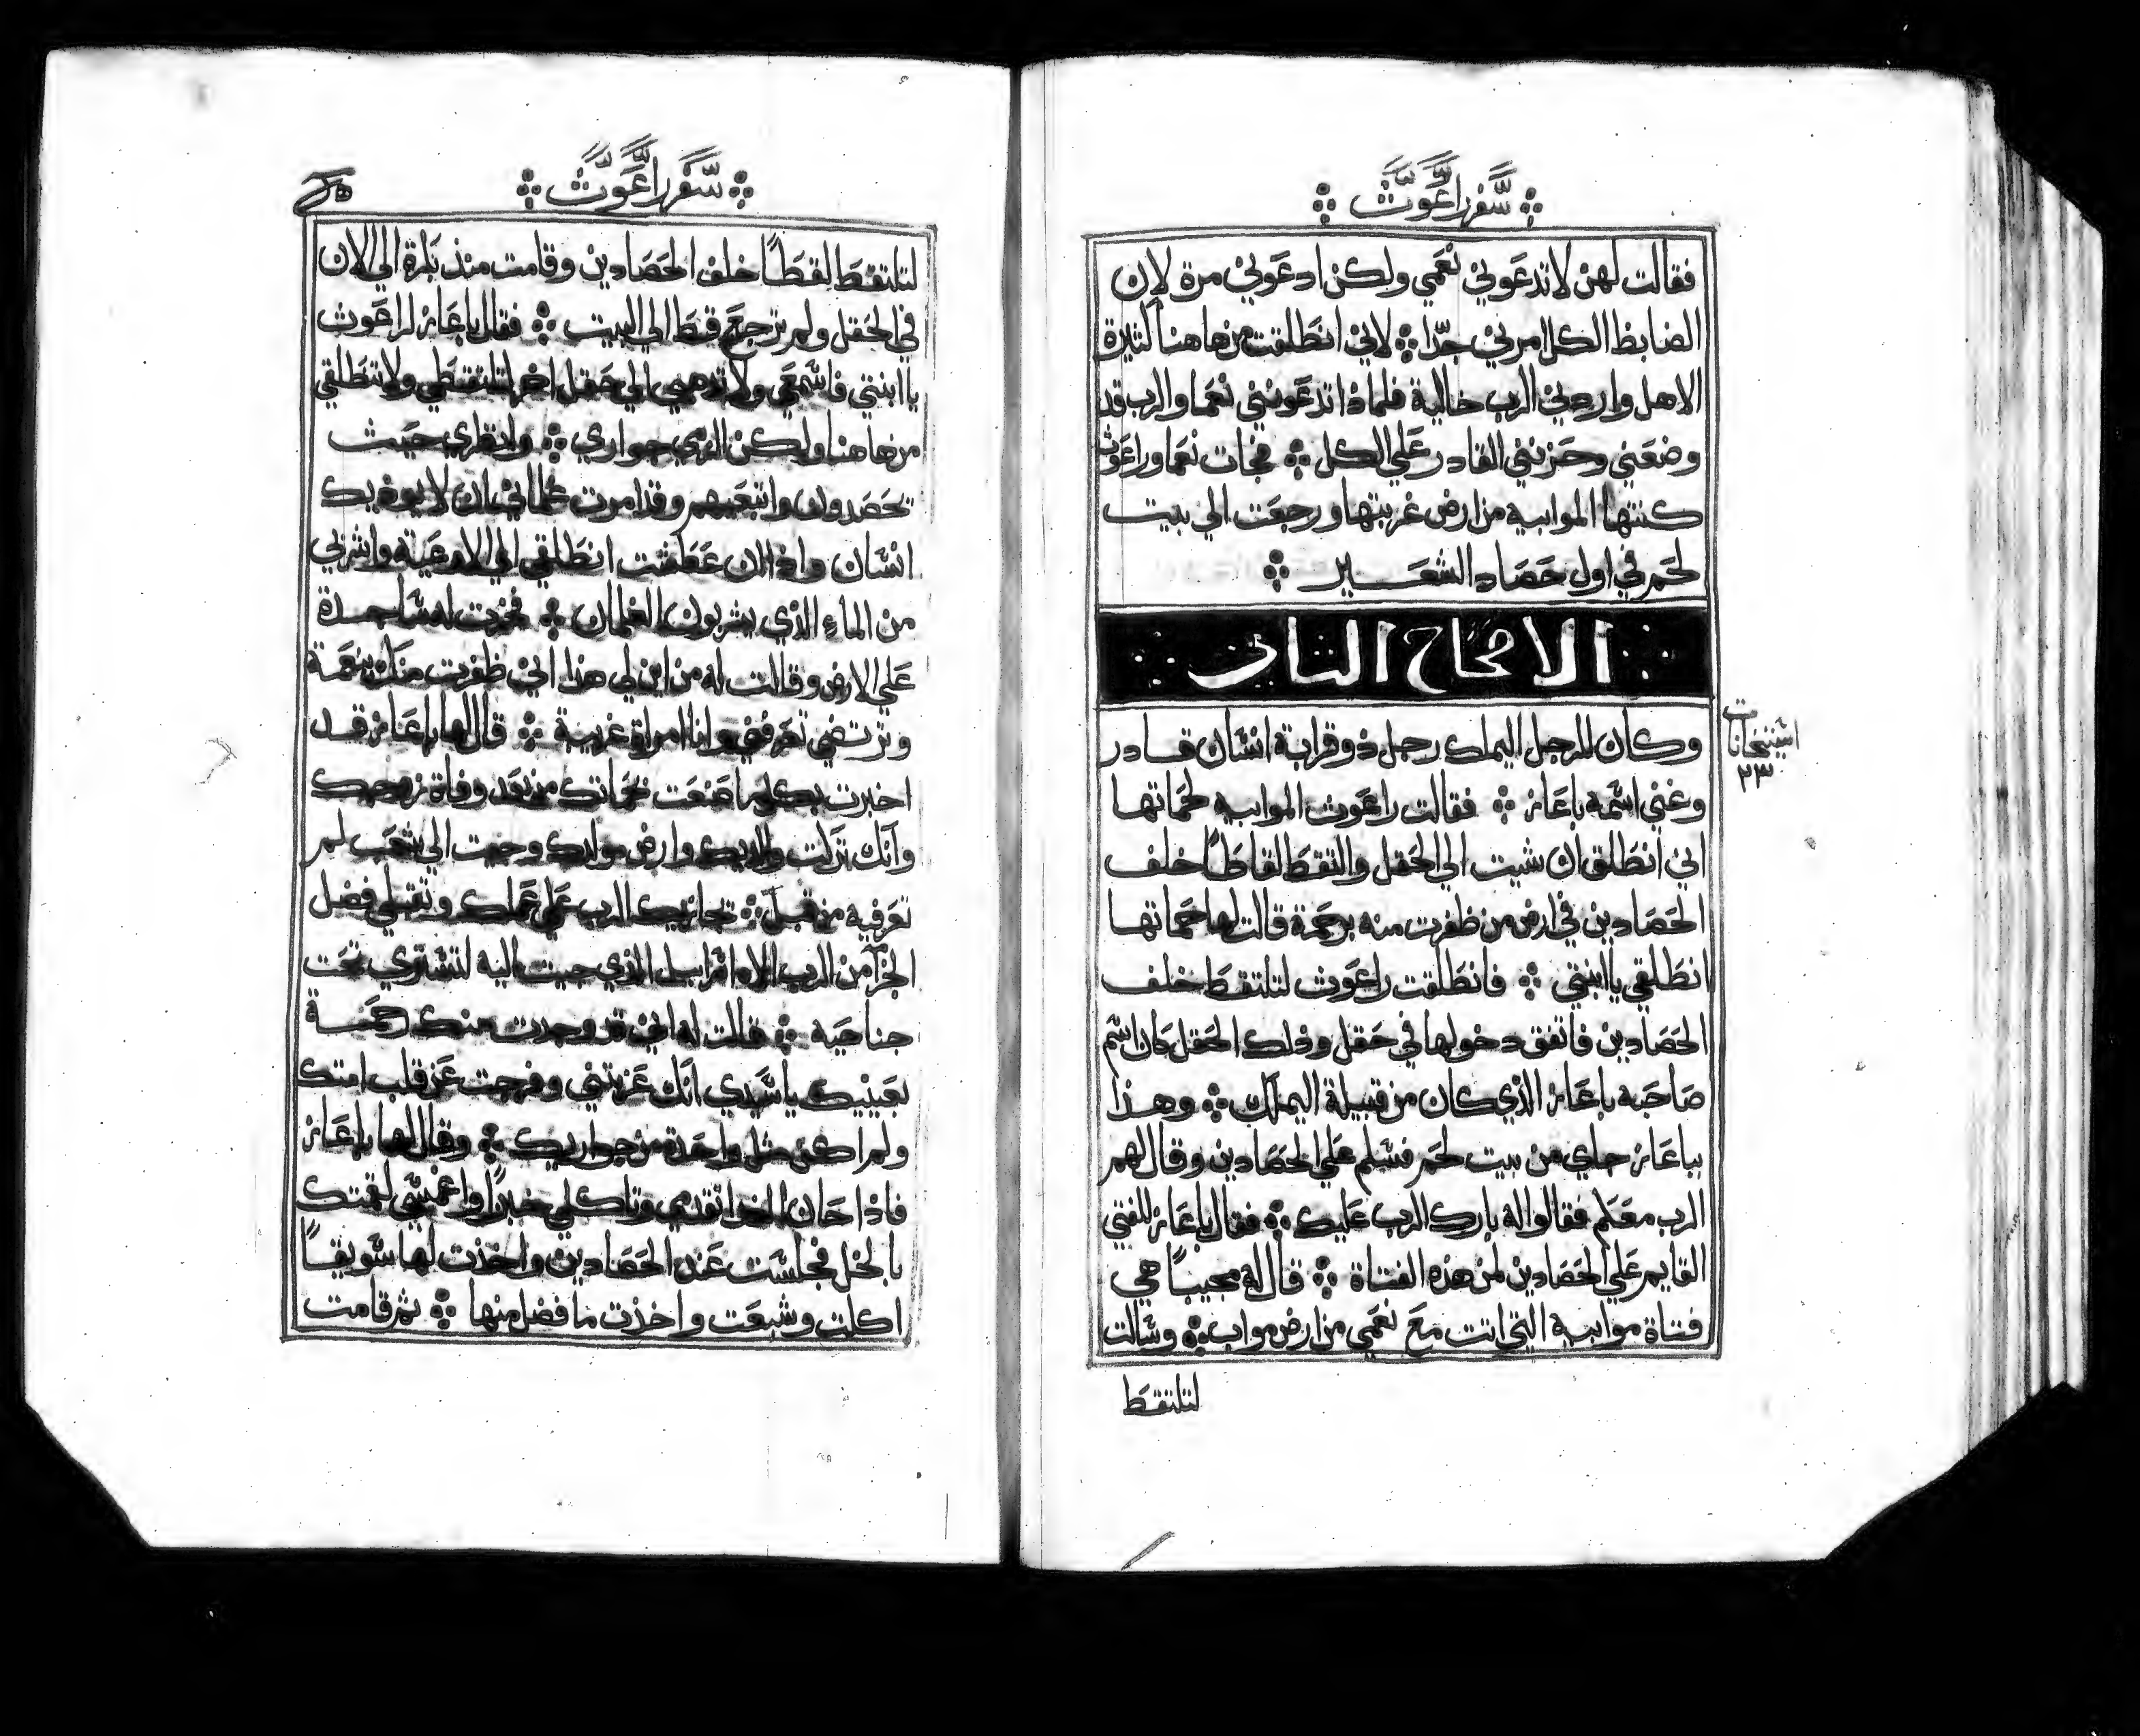 سفر راعوث
فقالت لهن لا تدعوني نعمي ولكن ادعوني مرة لان
الضابط الكل امرني جدا لاني انطلقت من هاهنا كثيرة
الاهل واردني الرب خالية فلماذا تدعونني نعما والرب قد
وضعني وحزنني القادر علي الكل فجات نعما وراعوث
كنتها الموابيه من ارض غربتها ورجعت الي بيت
لحم في اول حصاد الشعير
الاصحاح الثاني
وكان للرجل اليملك رجل ذو قرابة انسان قادر
وغني اسمه باعاز فقالت راعوث الموابيه لحماتها
اني انطلق ان شيت الي الحقل والتقط لقاطا خلف
الحصادين في ارض من ظفرت منه برحمة قالت لها حماتها
انطلقي ياابنتي فانطلقت راعوث لتلتقط خلف
الحصادين فاتفق دخولها في حقل وذلك الحقل كان اسم
صاحبه باعاز الذي كان من قبيلة اليملك وهذا
بباعاز جاي من بيت لحم فسلم علي الحصادين وقال لهم
الرب معكم فقالوا له بارك الرب عليك فقال باعاز للفتي
القايم علي الحصادين لمن هذه الفتاة قال له مجيبا هي
فتاة موابيه التي اتت مع نعمي من ارض مواب وسالت
لتلتقط
٢٣
سفر راعوث
لتلتقط لقطا خلف الحصادين وقامت منذ بكرة الي الان
في الحقل ولم ترجع قط الي البيت فقال باعاز لراعوث
ياابنتي فاسمعي ولا تذهبي الي حقل اخر لتلتقطي ولا تنطلقي
من هاهنا ولكن الزمي جواري وانظري حيث
تحصدون واتبعيهم وقد امرت غلماني ان لا يوذيك
انسان واذا ان عطشت انطلقي الي الاوعية واشربي
من الماء الذي يشربون الغلمان فخرت له ساجدة
علي الارض وقالت له من اين لي هذا اني ظفرت منك بنعمة
وترتضي تعرفني وانا امراة غريبة قال لها باعاز قد
اخبرت بكلما صنعت بحماتك من بعد وفاة زوجك
وانك تركت والديك وارض مولدك وجيت الي شعب لم
تعرفيه من قبل يجازيك الرب علي عملك وتقبلي فضل
الجزآ من الرب الاه اسراييل الذي جيت اليه لتستتري تحت
جناحيه قالت له اني قد وجدت منك رحمة
بعينيك ياسيدي انك عزيتني وفرحت عن قلب امتك
ولم اكن مثل واحدة من جواريك وقال لها باعاز
فاذا حان الغدا تقدمي وتاكلي خبزا واغمسي لقمتك
بالخل فجلست عند الحصادين واخذت لها سويقا
اكلت وشبعت واخذت ما فضل منها ثم قامت